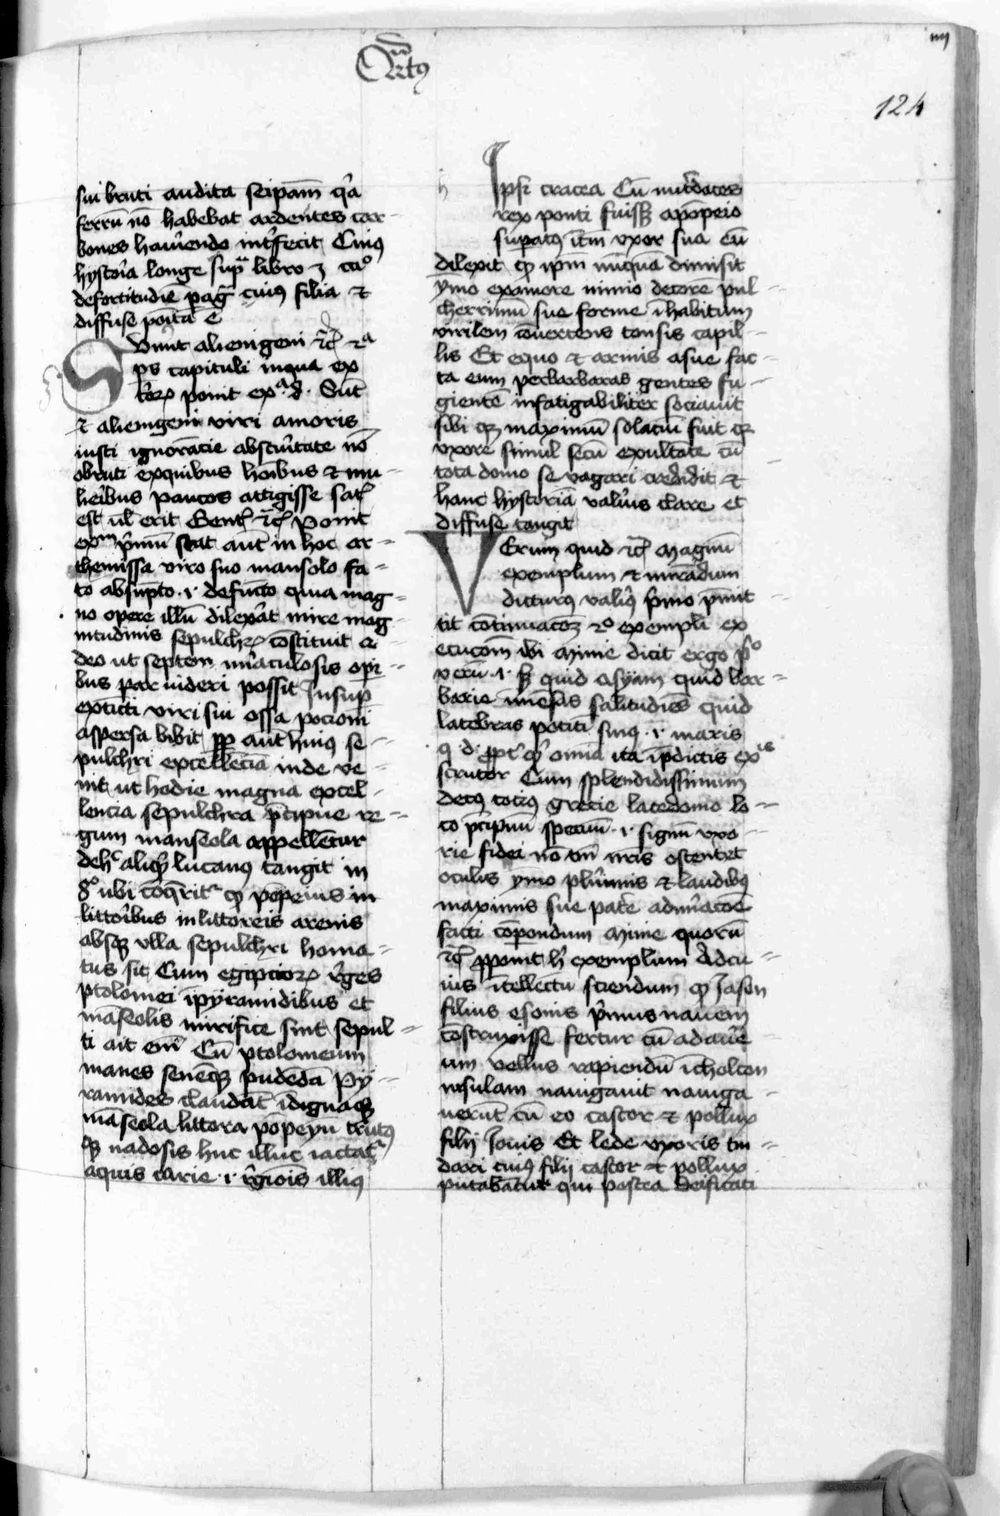 Qꝛtꝰ
iiij
124
sui bruti audita seipam̄ qꝛa
ferrū nō habebat ardentes car-
bones hauriendo int̄fecit Cuiꝰ
hystoria longe supra libro 3 caᵒ
de fortitudīe pag̃ cuiꝰ filia et
diffuse poīta ē
Sunt alienigeni ⁊c̄ ⁊ᵃ
ps capituli in qua ex
ponit exᵃ d. Sūt
⁊ alienigeni viri amoris
iusti ignorācie abscuritate nō
obruti ex quibus hoībus et mu-
lieribus paucos attigisse sat̄
est ul̄ erit Gent̄ ⁊c̄ ponit
exᵐ p̄mū stat aūt in hoc ar-
themissa viro suo mansolo fa-
to absūpto .i. defūcto quia mag-
no opere illū dilexat mire mag
nitudinis sepulchrꝝ cōstituit a-
deo ut septem mīaculosis opi-
bus par uideri possit Insup
extīcti viri sui ossa pocioni
aspersa bibit ꝓp̄ aūt huiꝰ se-
pulchri excellēcia inde ve-
nit ut hodie magna excel-
lencia sepulchra p̄cipue re-
gum manseola appellentur
de hᶜ aliqꝫ lucanꝰ tangit in
8ᵒ ubi conq̄rit̄ ꝙ pōpeius in
littoribus in littoreis arenis
absqꝫ vlla sepulchri horna-
tus sit Cum egiptiorꝝ reges
ptolomei ī pyramidibus et
māseolis mirifice sint sepul-
ti ait em̄ Cū ptolomeum
manes seneqꝫ pudedā Py-
ramides claudāt īdignaqꝫ
māseola littora pōpeyū trūcꝰ
qꝫ uadosis huc illuc iactat̄
aquis carie .i. regiōis illiꝰ
Ipsi cracea Cū mitridates
rex ponti fuissꝫ a pōpeio
supatꝰ itm̄ vxor sua eū
dilexit ꝙ ipm̄ nūquā dimisit
ymo ex amore nimio decorē pul-
cherrimū sue forme ī habitum
virilem cōuertens tonsis capil-
lis Et equo et armis asue fac-
ta eum per barbaras gentes fu-
gientē infatigabiliter sociauit
sibi qꝫ maximū solaciū fuit qꝫ
vxore simul secū exultāte cū
tota domo se vagari credidit et
hanc hystoriā valꝰius clare et
diffuse tangit
Verum quid ⁊c̄ Magnū
exemplum et mirādum
dicturꝰ valꝰiꝰ p̄mo p̄mit-
tit cōtinuacōꝫ ⁊ᵒ exempli ex
ecucōm̄ ibi Minie dicit ergo pᵒ
verū .i. sꝫ quid asyam quid bar-
barie īmēsas salitudīes quid
latebras potiti sinꝰ .i. maris
q. d. ꝓp̄t qꝫ omīa ita īp̄dictis exⁱˢ
scrutor Cum splendidissimum
decꝰ totiꝰ grecie lacedomo lo-
co p̄cipuū specim̄ .i. signū vxo-
rie fidei nō tm̄ nr̄is ostentet
oculis ymo plurimis et laudibꝰ
maximis sue patrie admiracōe
facti cōperondum Minie quorū
⁊c̄ ꝓponit hᶜ exemplum Ad cu-
ius ītellectū sciendum ꝙ Jason
filius esonis p̄mus nauem
cōstruxisse fertur cū ad aure
um vellus rapiendū ī cholcon
insulam nauigauit nauiga-
uerūt cū eo castor et pollux
filij Iouis Et lede vxoris tin-
dari cuiꝰ filij castor et pollux
putabāntur qui postea deificati